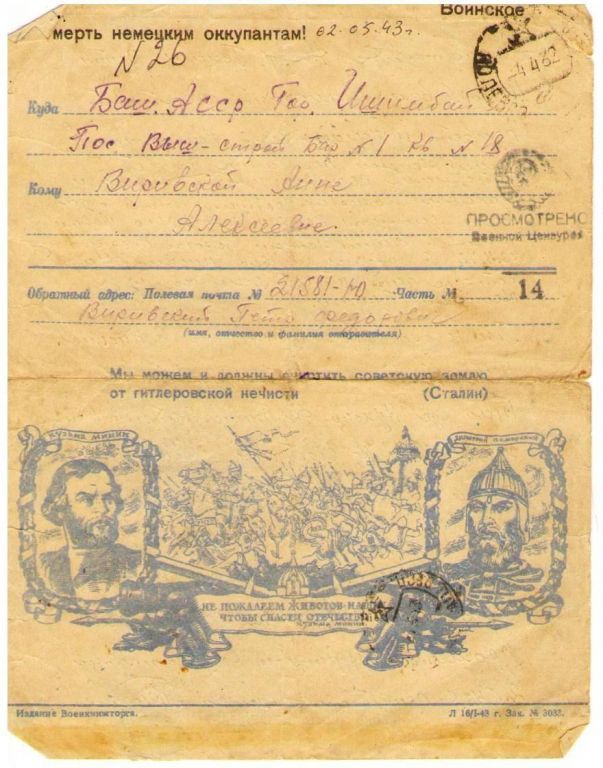 Воинское
мерть немецким оккупантам! 02.05.43г.
N 26
-4 4 3
Куда Баш. Асср Гор. Ишимбай
Пос Выш-строй Бар N 1 кв N 18
Кому Вировской Анне
Алексеевне.
ПРОСМОТРЕНО
Военной Цензурой
14
Обратный адрес: Полевая почта № 21581-Ю Часть №
Вировский Петр
(имя, отчество и фамилия отправителя)
Мы можем и должны очистить советскую землю
от гитлеровской нечисти (Сталин)
КУЗЬМА МИНИН
ДМИТРИЙ ПОЖАРСКИЙ
НЕ ПОЖАЛЕЕМ ЖИВОТОВ НАШИХ
ЧТОБЫ СПАСТИ ОТЕЧЕСТВО
КУЗЬМА МИНИН
Издание Военкнижторга. Л 16/I-43 г. Зак. № 3033.